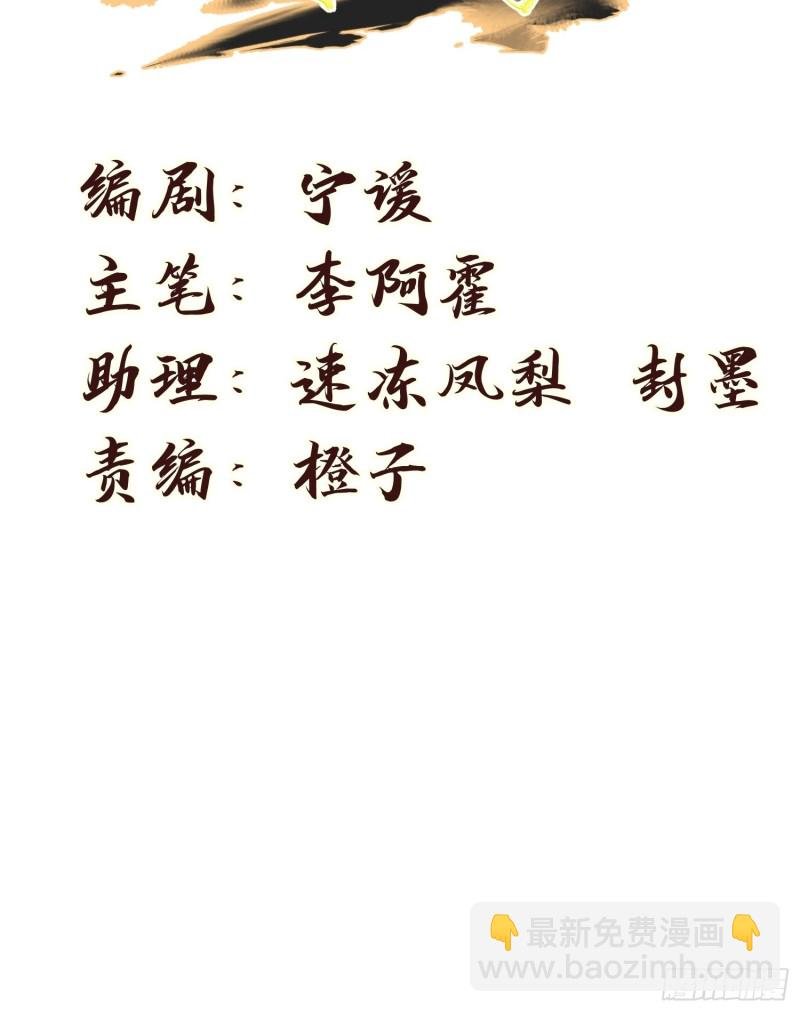 编剧：宁谖
主笔：李阿霍
助理：速冻凤梨 封墨
责编：橙子
👇最新免费漫画👇
www.baozimh.com